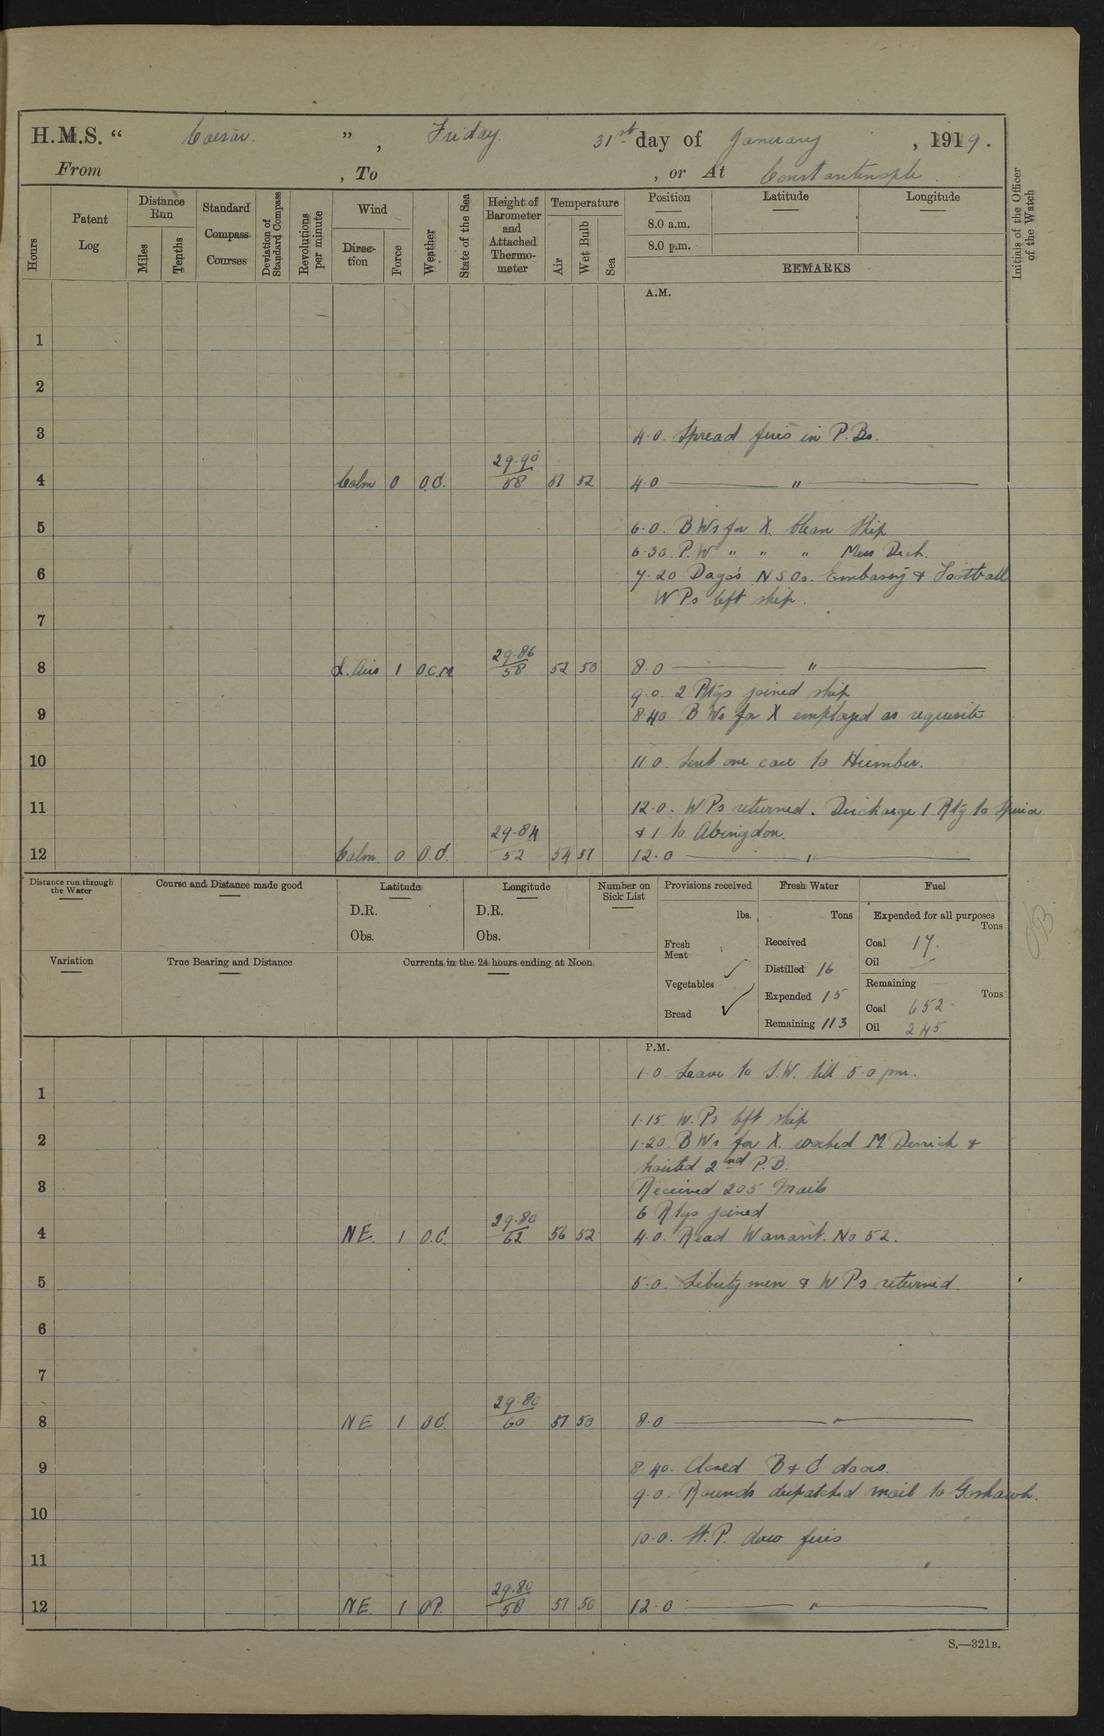 H.M.S. " Caesar. ", Friday. 31st day of January, 1919.
From , To , or At Constantinople
Hours
Patent Log
Distance Run
Miles
Tenths
Standard Compass Courses
Deviation of Standard Compass
Revolutions per minute
Wind
Direction
Force
Weather
State of the Sea
Height of Barometer and Attached Thermometer
Temperature
Air
Wet Bulb
Sea
Position
8.0 a.m.
8.0 p.m.
Latitude
Longitude
REMARKS
Initials of the Officer of the Watch
A.M.
1
2
3 4.0. Spread fires in P. Bs.
4 Calm 0 O.C. 29.90/58 51 52 4.0 "
5 6.0. B Ws for X. Clean Ship
6.30. P.W " " " Mess Deck.
6 7.20 N.S.Os. Embassy & Football
W Ps left ship.
7
8 L. Airs 1 O.C.M 29.86/58 52 50 8.0 "
9.0. 2 Rtgs joined ship
9 8.40 B Ws for X employed as requisite
10 11.0. Sent one case to Humber.
11 12.0. W Ps returned. Discharge 1 Rtg to
& 1 to Abingdon.
12 Calm. 0 O.C. 29.84/52 54 51 12.0 "
Distance run through the Water
Course and Distance made good
Latitude
D.R.
Obs.
Longitude
D.R.
Obs.
Number on Sick List
Provisions received
lbs.
Fresh Meat
Vegetables ✓
Bread ✓
Fresh Water
Tons
Received
Distilled 16
Expended 15
Remaining 113
Fuel
Expended for all purposes
Tons
Coal 17.
Oil —
Remaining
Tons
Coal 652
Oil 245
Variation
True Bearing and Distance
Currents in the 24 hours ending at Noon.
P.M.
1.0 Leave to S.W. till 5.0 pm.
1
1.15. W. Ps left ship
2 1.20. B Ws for X. worked M. Derrick &
hoisted 2nd P.B.
3 Received 205 Mails
6 Rtgs joined
4 NE. 1 O.C. 29.80/62 56 52 4.0. Read Warrant. No 52.
5 5.0. Liberty men & W Ps returned.
6
7
8 NE 1 O.C. 29.80/60 51 50 8.0 "
9 8.40. Closed B & C doors.
9.0. Rounds despatched mail to Goshawk.
10
10.0. St. P. draw fires
11
12 NE. 1 O.P. 29.80/58 51 50 12.0 "
S.—321B.